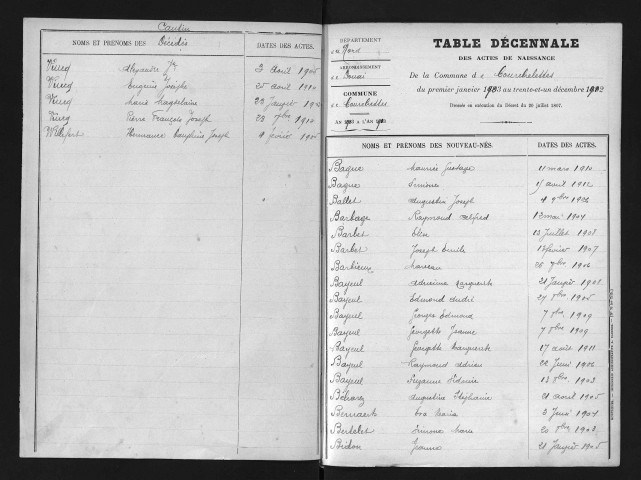 Cantin
NOMS ET PRÉNOMS DES Décédés
DATES DES ACTES.
Alexandre 3 avril 1905
Eugénie Josèphe 25 avril
Marie Magdelaine 23 Janvier
Pierre François Joseph 23 9bre
Hermance Dauphine Joseph 9 février 1905
DÉPARTEMENT
du Nord
ARRONDISSEMENT
de Douai
COMMUNE
de Courchelettes
TABLE DÉCENNALE
DES ACTES DE NAISSANCE
De la Commune de Courchelettes
du premier janvier 1903 au trente-et-un décembre 1912
Dressée en exécution du Décret du 20 juillet 1807.
NOMS ET PRÉNOMS DES NOUVEAU-NÉS.
DATES DES ACTES.
Bague Maurice Gustave 11 mars 1910
Bague avril 1912
Ballet Augustin Joseph 4 9bre 1906
Barbage Raymond Alfred 12 mai 1904
Barbet 13 Juillet 1908
Barbet Joseph Emile février 1907
Barbieux Marceau 26 7bre 1906
Bayeul Adrienne Marguerite 21 Janvier 1908
Bayeul Edmond André 27 8bre 1905
Bayeul Georges Edmond 7 8bre 1909
Bayeul Georgette Jeanne 7 8bre 1909
Bayeul Georgette Marguerite 17 août 1911
Bayeul Raymond Adrien 22 Juin 1906
Bayeul Suzanne 13 8bre 1903
Augustine Stéphanie 21 avril 1905
Bernaert Eva Maria 3 Juin 1904
Bertelet Simone Marie 20 8bre 1903
Bidon Jeanne 21 Janvier 1905